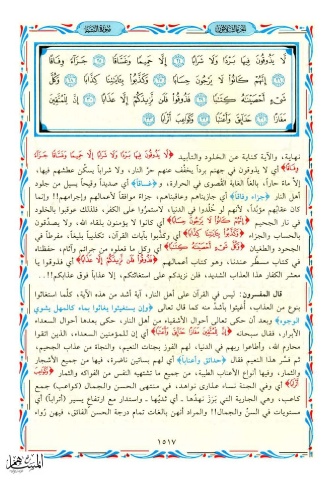 لَّا يَذُوقُونَ فِيهَا بَرْدًا وَلَا شَرَابًا ﴿٢٤﴾ إِلَّا حَمِيمًا وَغَسَّاقًا ﴿٢٥﴾ جَزَآءً وِفَاقًا
﴿٢٦﴾ إِنَّهُمْ كَانُوا۟ لَا يَرْجُونَ حِسَابًا ﴿٢٧﴾ وَكَذَّبُوا۟ بِـَٔايَـٰتِنَا كِذَّابًا ﴿٢٨﴾ وَكُلَّ
شَىْءٍ أَحْصَيْنَـٰهُ كِتَـٰبًا ﴿٢٩﴾ فَذُوقُوا۟ فَلَن نَّزِيدَكُمْ إِلَّا عَذَابًا ﴿٣٠﴾ إِنَّ لِلْمُتَّقِينَ
مَفَازًا ﴿٣١﴾ حَدَآئِقَ وَأَعْنَـٰبًا ﴿٣٢﴾ وَكَوَاعِبَ أَتْرَابًا ﴿٣٣﴾
نهاية، والآية كناية عن الخلود والتأبيد ﴿لَّا يَذُوقُونَ فِيهَا بَرْدًا وَلَا شَرَابًا إِلَّا حَمِيمًا وَغَسَّاقًا جَزَآءً
وِفَاقًا﴾ أي لا يذوقون في جهنم برداً يخفّف عنهم حرَّ النار، ولا شراباً يسكّن عطشهم فيها،
إلا ماءً حاراً، بالغاً الغاية القصوى في الحرارة، و﴿غساقاً﴾ أي صديداً وقيحاً يسيل من جلود
أهل النار ﴿جزاء وفاقاً﴾ أي جازيناهم وعاقبناهم، جزاءً موافقاً لأعمالهم وإجرامهم!! وإنما
كان عقابهم مؤبداً، لأنهم لو خُلِّدوا في الدنيا، لاستمرُّوا على الكفر، فلذلك عوقبوا بالخلود
في نار الجحيم ﴿إِنَّهُمْ كَانُوا۟ لَا يَرْجُونَ حِسَابًا﴾ أي كانوا لا يؤمنون بلقاء الله، ولا يصدقون
بالحساب والجزاء ﴿وَكَذَّبُوا۟ بِـَٔايَـٰتِنَا كِذَّابًا﴾ أي وكذّبوا بآيات القرآن، تكذيباً بليغاً، مفرطاً في
الجحود والطغيان ﴿وَكُلَّ شَىْءٍ أَحْصَيْنَـٰهُ كِتَـٰبًا﴾ أي وكل ما فعلوه من جرائم وآثام، حفظناه
في كتاب مسطّر عندنا، وهو كتاب أعمالهم ﴿فَذُوقُوا۟ فَلَن نَّزِيدَكُمْ إِلَّا عَذَابًا﴾ أي فذوقوا يا
معشر الكفار هذا العذاب الشديد، فلن نزيدكم على استغاثتكم، إلا عذاباً فوق عذابكم!!..
قال المفسرون: ليس في القرآن على أهل النار، آية أشد من هذه الآية، كلَّما استغاثوا
بنوع من العذاب، أُغيثوا بأشدَّ منه كما قال تعالى ﴿وإن يستغيثوا يغاثوا بماء كالمهل يشوي
الوجوه﴾ وبعد أن حكى تعالى أحوال الأشقياء من أهل النار، حكى بعدها أحوال السعداء
الأبرار، فقال سبحانه ﴿إِنَّ لِلْمُتَّقِينَ مَفَازًا حَدَآئِقَ وَأَعْنَـٰبًا﴾ أي إن للمؤمنين السعداء، الذين اتقوا
محارم الله، وأطاعوا ربهم في الدنيا، لهم الفوز بجنات النعيم، والنجاة من عذاب الجحيم،
ثم فسَّر هذا النعيم فقال ﴿حدائق وأعناباً﴾ أي لهم بساتين ناضرة، فيها من جميع الأشجار
والثمار، وفيها أنواع الأعناب الطيبة، من جميع ما تشتهيه النفس من الفواكه والثمار ﴿وَكَوَاعِبَ
أَتْرَابًا﴾ أي وفي الجنة نساء عذارى نواهد، في منتهى الحسن والجمال (كواعب) جمع
كاعب، وهي الجارية التي بَرَزَ نهدُها - أي ثديُها - واستدار مع ارتفاع يسير (أتراباً) أي
مستويات في السنِّ والجمال!! والمراد أنهن بالغات تمام درجة الحسن الفائق، فهن رُواء
١٥١٧